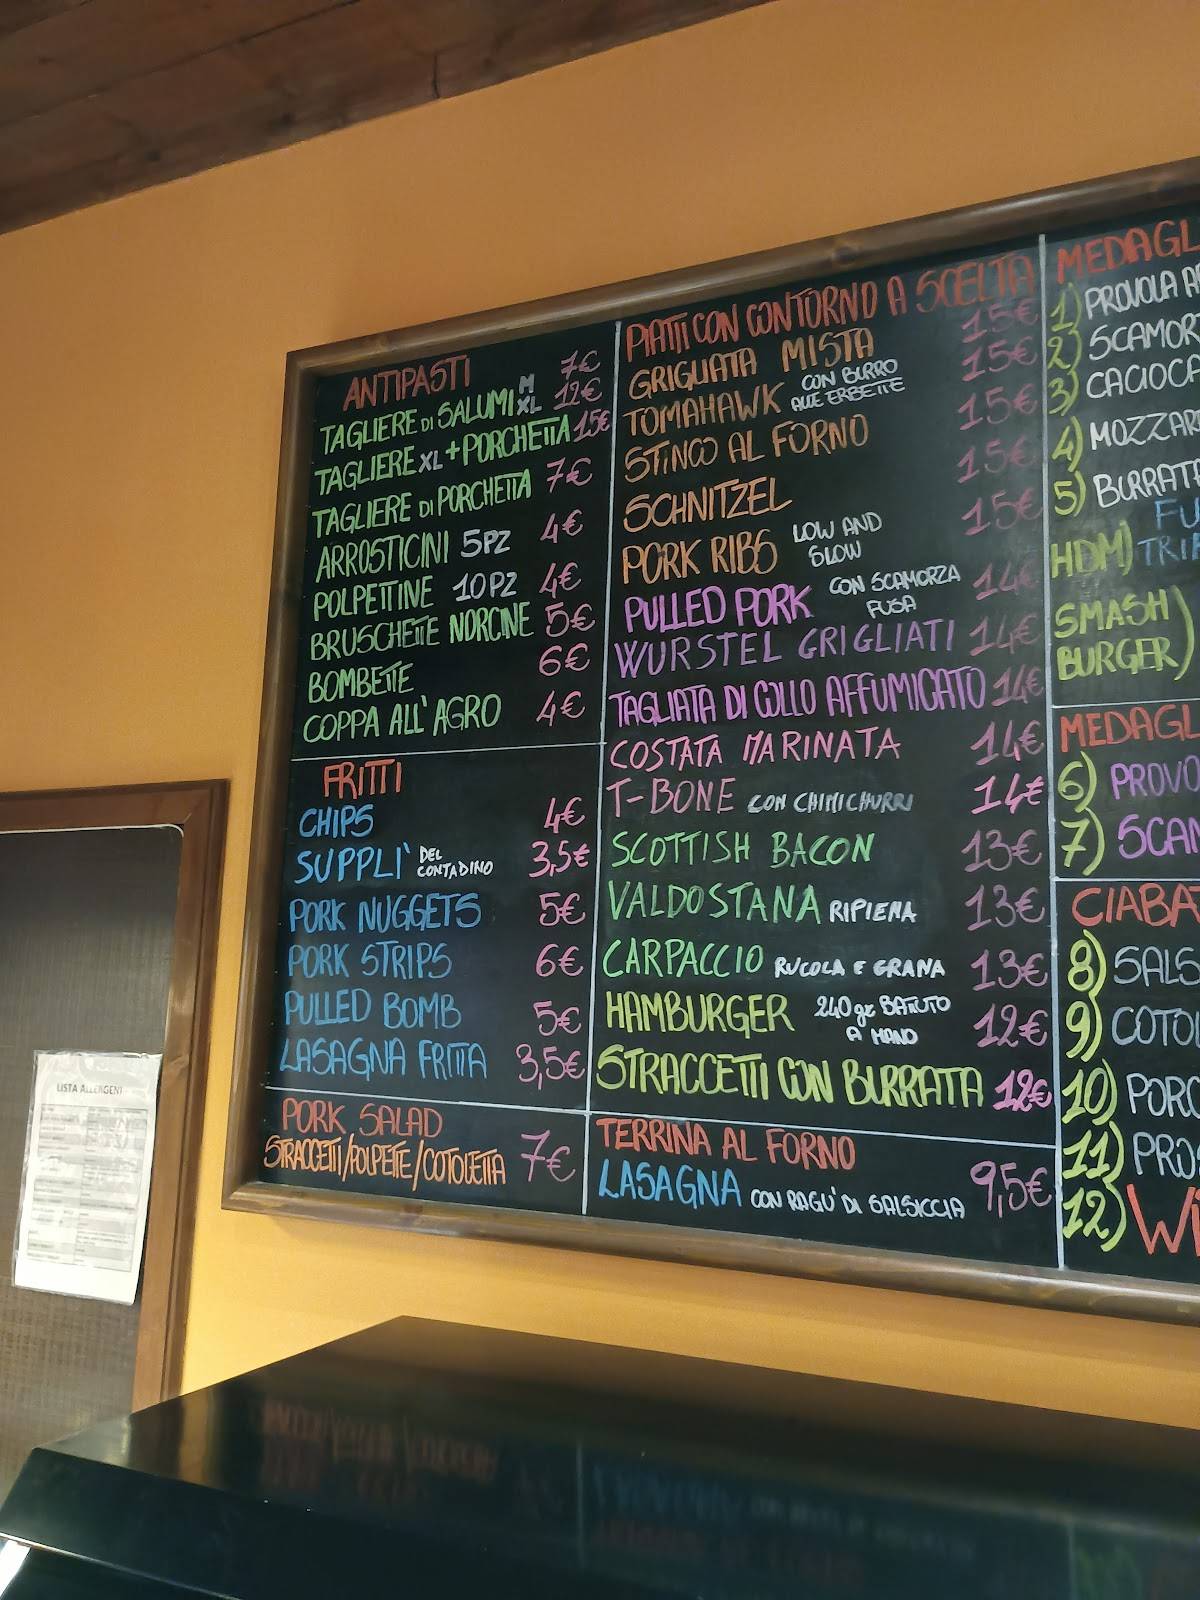 ANTIPASTI
TAGLIERE DI SALUMI M 7€
XL 12€
TAGLIERE XL + PORCHETTA 15€
TAGLIERE DI PORCHETTA 7€
ARROSTICINI 5PZ 4€
POLPETTINE 10PZ 4€
BRUSCHETTE NORCINE 5€
BOMBETTE 6€
COPPA ALL'AGRO 4€
FRITTI
CHIPS 4€
SUPPLI' DEL CONTADINO 3,5€
PORK NUGGETS 5€
PORK STRIPS 6€
PULLED BOMB 5€
LASAGNA FRITTA 3,5€
PORK SALAD
STRACCETTI/POLPETTE/COTOLETTA 7€
PIATTI CON CONTORNO A SCELTA
GRIGLIATA MISTA 15€
TOMAHAWK CON BURRO ALLE ERBETTE 15€
STINCO AL FORNO 15€
SCHNITZEL 15€
PORK RIBS LOW AND SLOW 15€
PULLED PORK CON SCAMORZA FUSA 14€
WURSTEL GRIGLIATI 14€
TAGLIATA DI COLLO AFFUMICATO 14€
COSTATA MARINATA 14€
T-BONE CON CHIMICHURRI 14€
SCOTTISH BACON 13€
VALDOSTANA RIPIENA 13€
CARPACCIO RUCOLA E GRANA 13€
HAMBURGER 240gr BATTUTO A MANO 12€
STRACCETTI CON BURRATA 12€
TERRINA AL FORNO
LASAGNA CON RAGU' DI SALSICCIA 9,5€
MEDAGL
1) PROVOLA AF
2) SCAMORZ
3) CACIOCA
4) MOZZAR
5) BURRAT
FU
HDM) TRI
SMASH BURGER)
MEDAGL
6) PROVO
7) SCAM
CIABA
8) SALS
9) COTO
10) PORC
11) PROS
12) WI
LISTA ALLERGENI